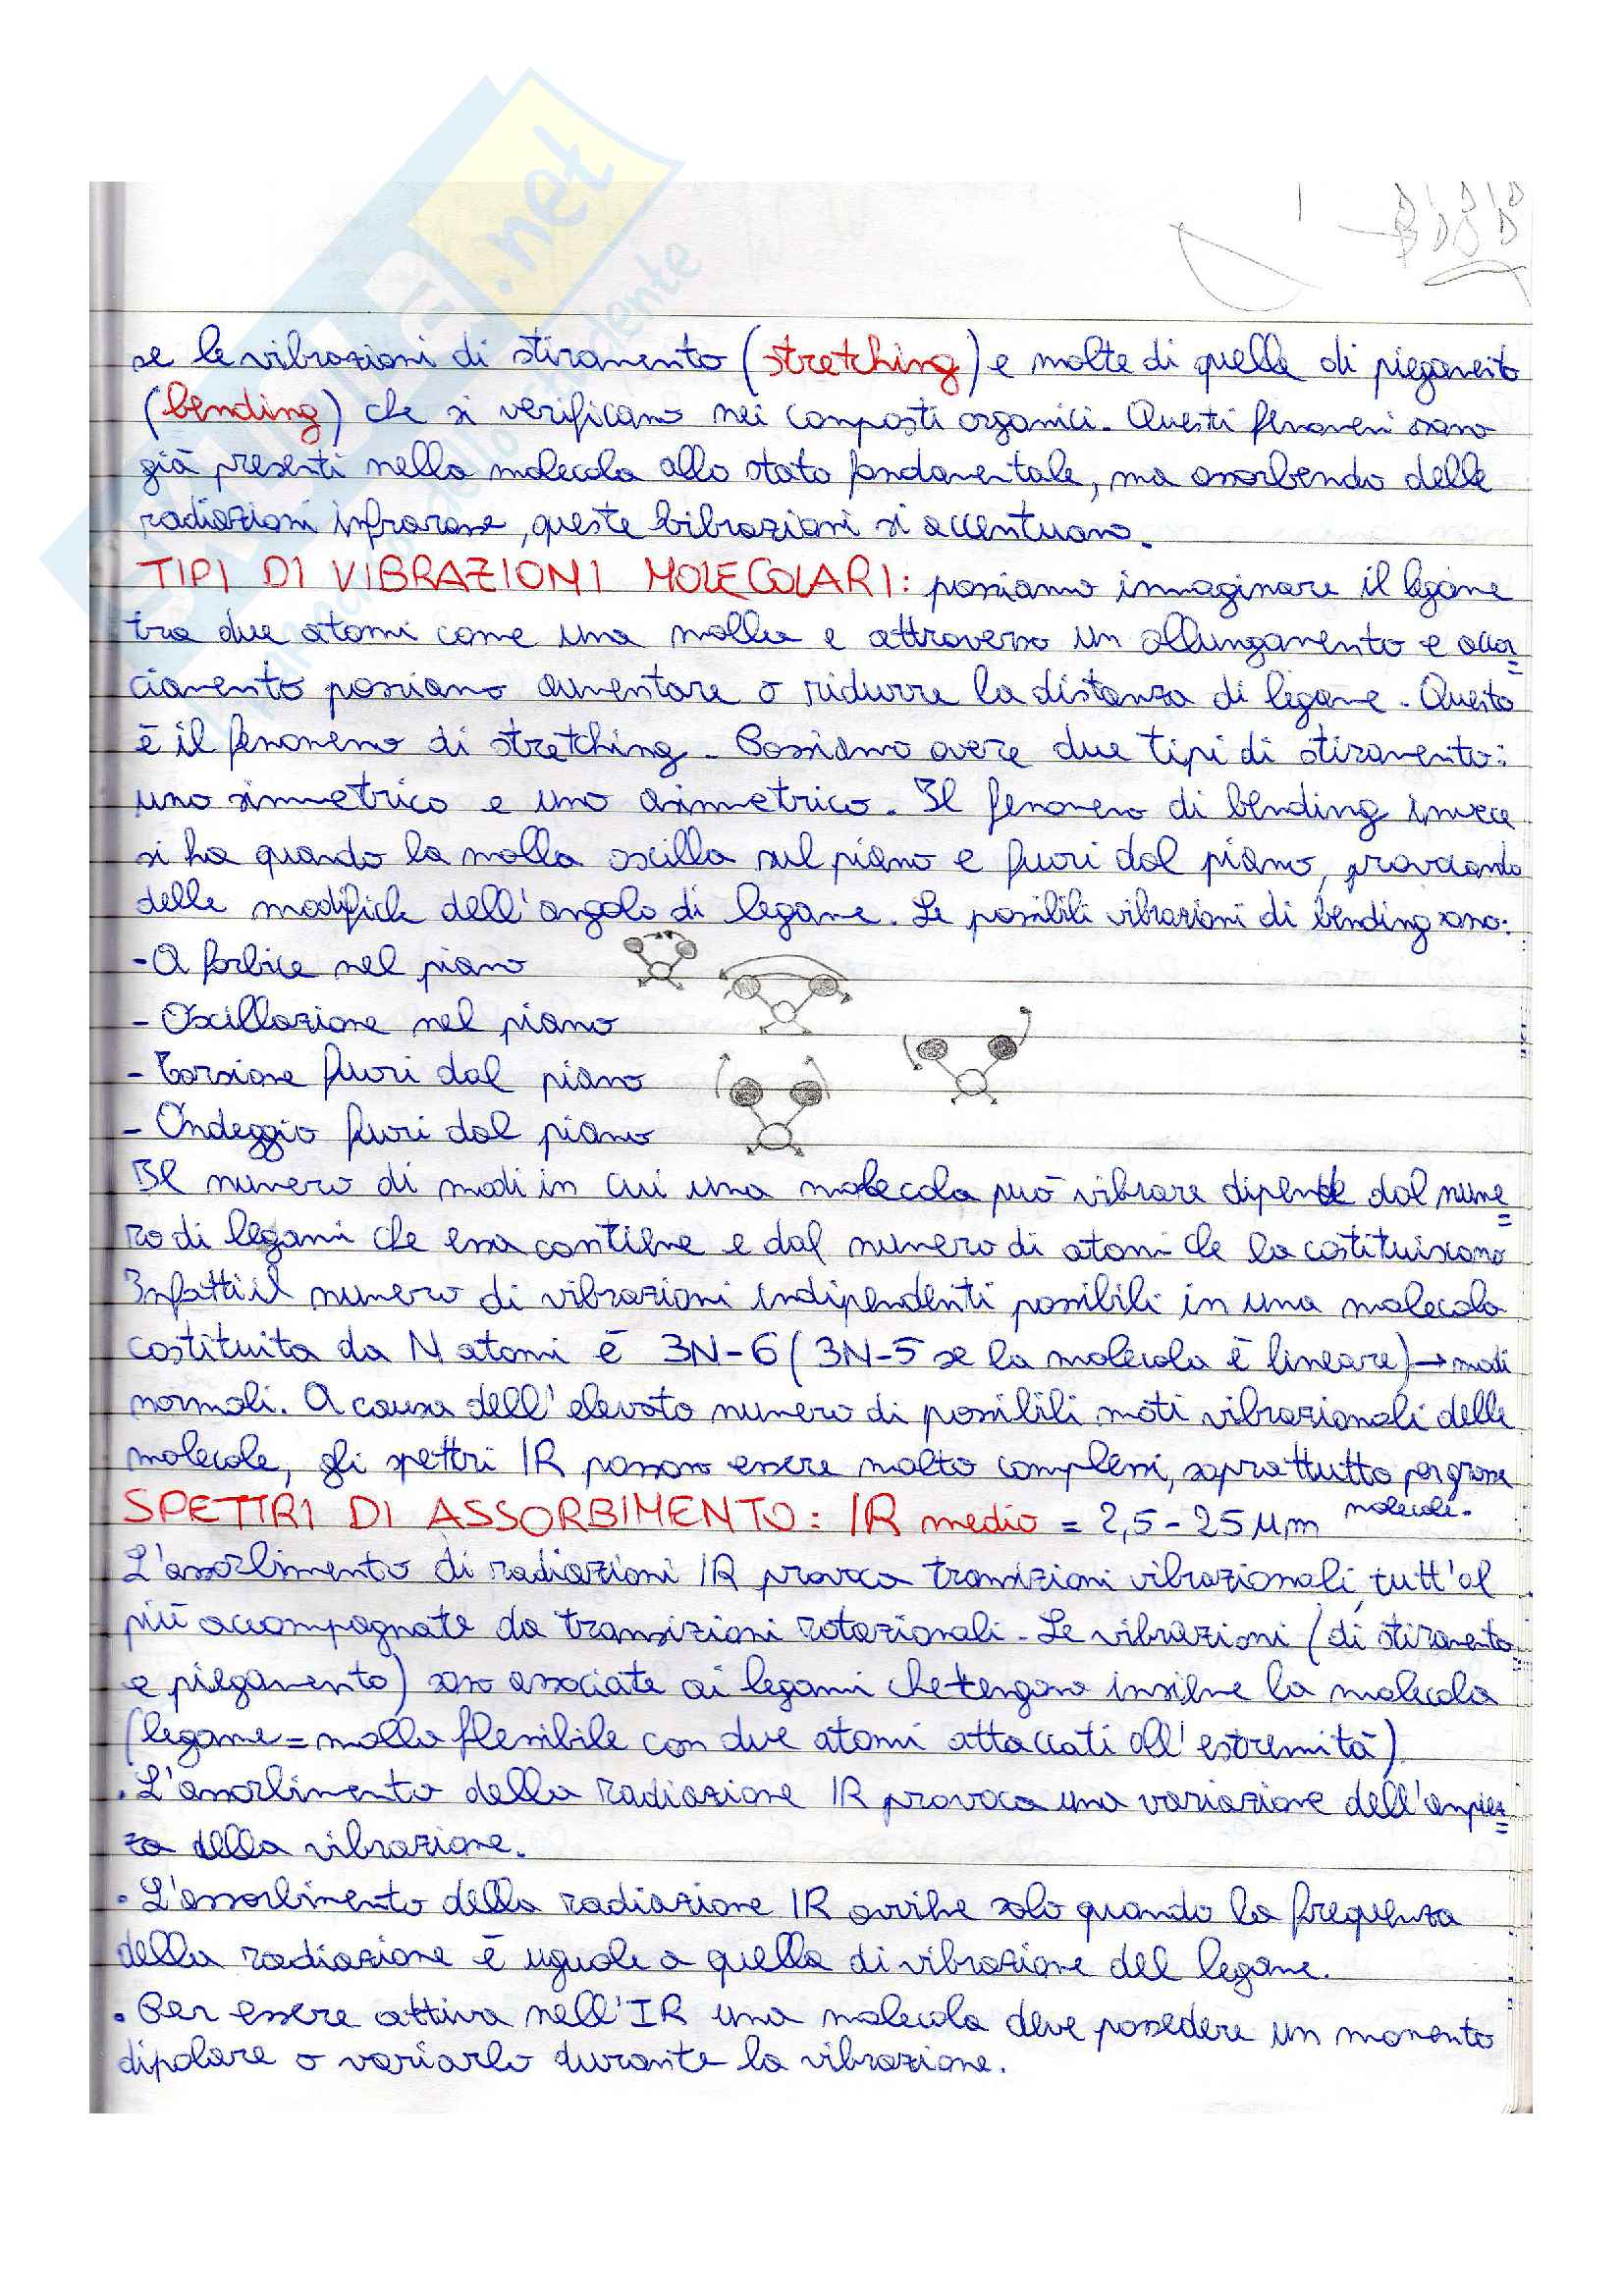 .net
se le vibrazioni di stiramento (stretching) e molte di quelle di piegamento
(bending) che si verificano nei composti organici. Questi fenomeni sono
già presenti nella molecola allo stato fondamentale, ma assorbendo delle
radiazioni infrarosse, queste vibrazioni si accentuano.
TIPI DI VIBRAZIONI MOLECOLARI: possiamo immaginare il legame
tra due atomi come una molla e attraverso un allungamento e accor=
ciamento possiamo aumentare o ridurre la distanza di legame. Questo
è il fenomeno di stretching. Possiamo avere due tipi di stiramento:
uno simmetrico e uno asimmetrico. Il fenomeno di bending invece
si ha quando la molla oscilla sul piano e fuori dal piano, provocando
delle modifiche dell'angolo di legame. Le possibili vibrazioni di bending sono:
- A forbice nel piano
- Oscillazione nel piano
- Torsione fuori dal piano
- Ondeggio fuori dal piano
Il numero di modi in cui una molecola può vibrare dipende dal nume=
ro di legami che essa contiene e dal numero di atomi che la costituiscono
Infatti il numero di vibrazioni indipendenti possibili in una molecola
costituita da N atomi è 3N-6 (3N-5 se la molecola è lineare) → modi
normali. A causa dell'elevato numero di possibili moti vibrazionali delle
molecole, gli spettri IR possono essere molto complessi, soprattutto per grosse
molecole.
SPETTRI DI ASSORBIMENTO: IR medio = 2,5-25 μm
L'assorbimento di radiazioni IR provoca transizioni vibrazionali, tutt'al
più accompagnate da transizioni rotazionali. Le vibrazioni (di stiramento
e piegamento) sono associate ai legami che tengono insieme la molecola
(legame = molla flessibile con due atomi attaccati all'estremità)
. L'assorbimento della radiazione IR provoca una variazione dell'ampiez=
za della vibrazione.
. L'assorbimento della radiazione IR avviene solo quando la frequenza
della radiazione è uguale a quella di vibrazione del legame.
. Per essere attiva nell'IR una molecola deve possedere un momento
dipolare o variarlo durante la vibrazione.